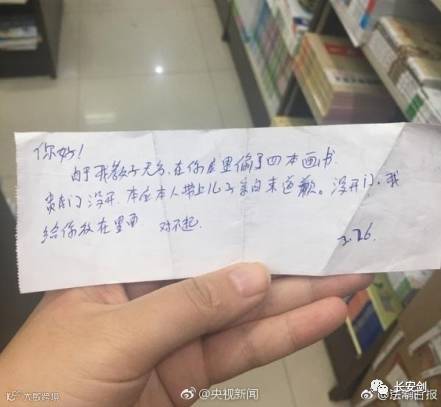 你好!
由于我教子无方,在你店里偷了四本画书.
贵门没开.本应本人带上儿子亲自来道歉。没开门.我
给你放在里面 对不起.
2.26.
大数跨境
@央视新闻
长安剑
@法制日报